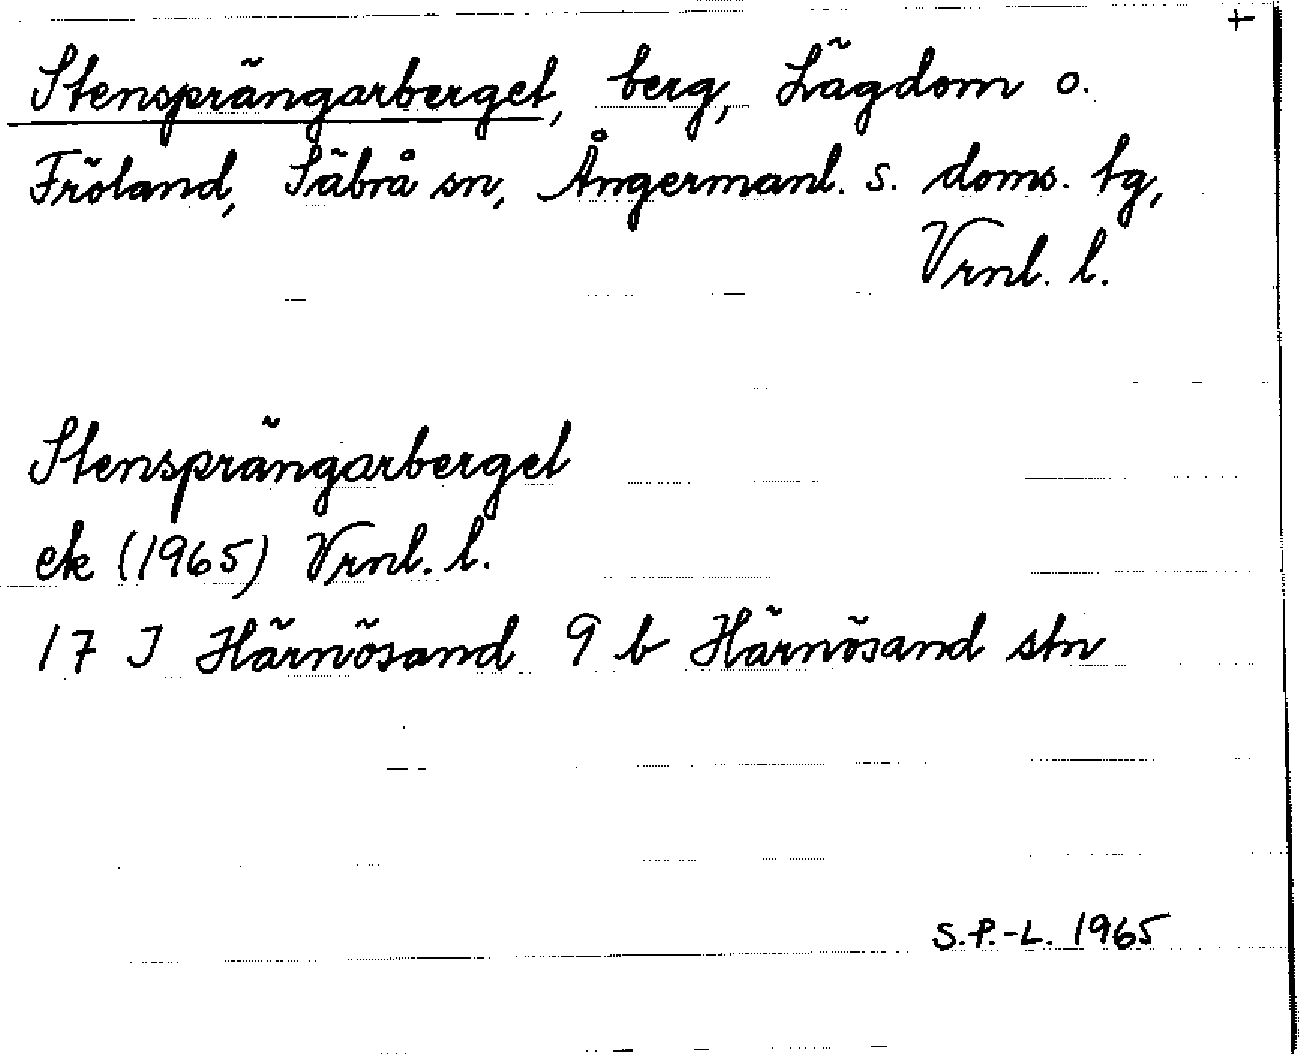 +
Stensprängarberget, berg, Lägdom o.
Fröland, Säbrå sn, Ångermanl. s. doms. tg,
Vrnl. l.
Stensprängarberget
ek (1965) Vrnl. l.
17 I Härnösand 9 b Härnösand stn
S.P.-L. 1965